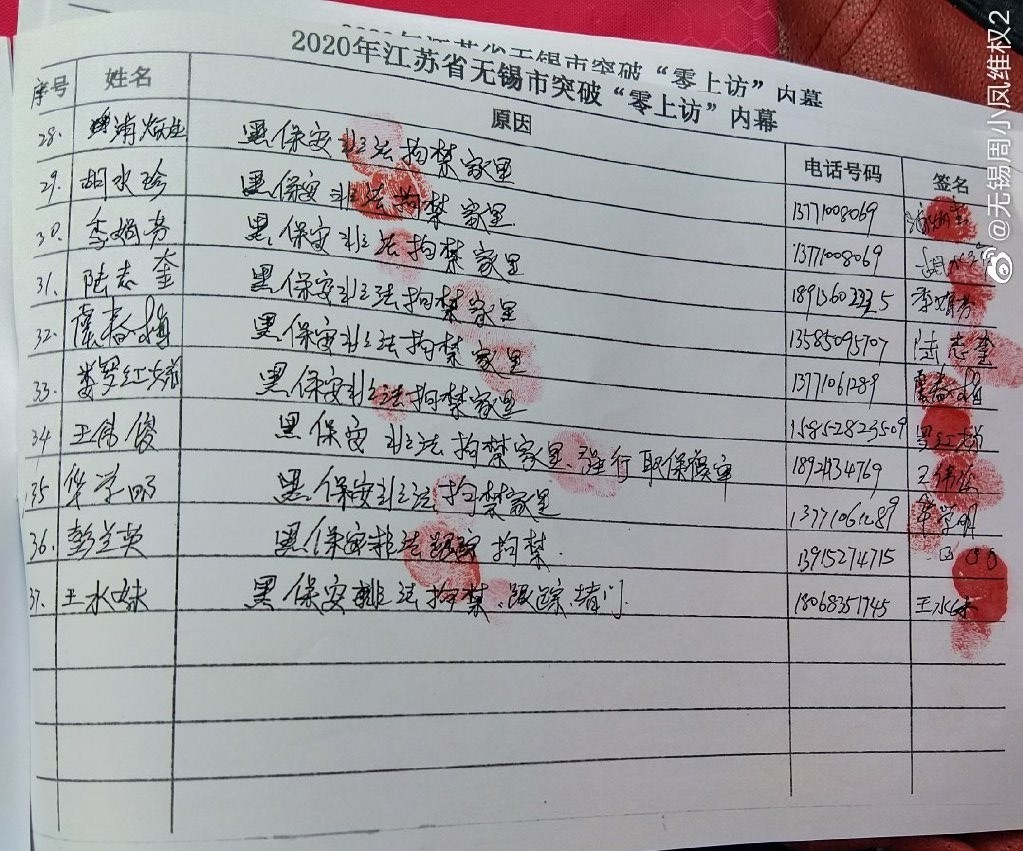 2020年江苏省无锡市突破“零上访”内幕
2020年江苏省无锡市突破“零上访”内幕
序号 姓名 原因 电话号码 签名
28. 黑保安非法拘禁家里 13771008069
29. 胡水珍 黑保安非法拘禁家里 13771008069 胡水珍
30. 季娟芳 黑保安非法拘禁家里 季娟芳
31. 陆志奎 黑保安非法拘禁家里 13585095707 陆志奎
32. 黑保安非法拘禁家里 13771061289
33. 黑保安非法拘禁家里 15852823509
34 王伟俊 黑保安非法拘禁家里、强行取保候审 王伟俊
35 华学明 黑保安非法拘禁家里 13771061289 华学明
36. 彭兰英 黑保安非法跟踪拘禁. 13915274715
37. 王水妹 黑保安非法拘禁、跟踪、堵门. 18068351745 王水妹
@无锡周小凤维权2